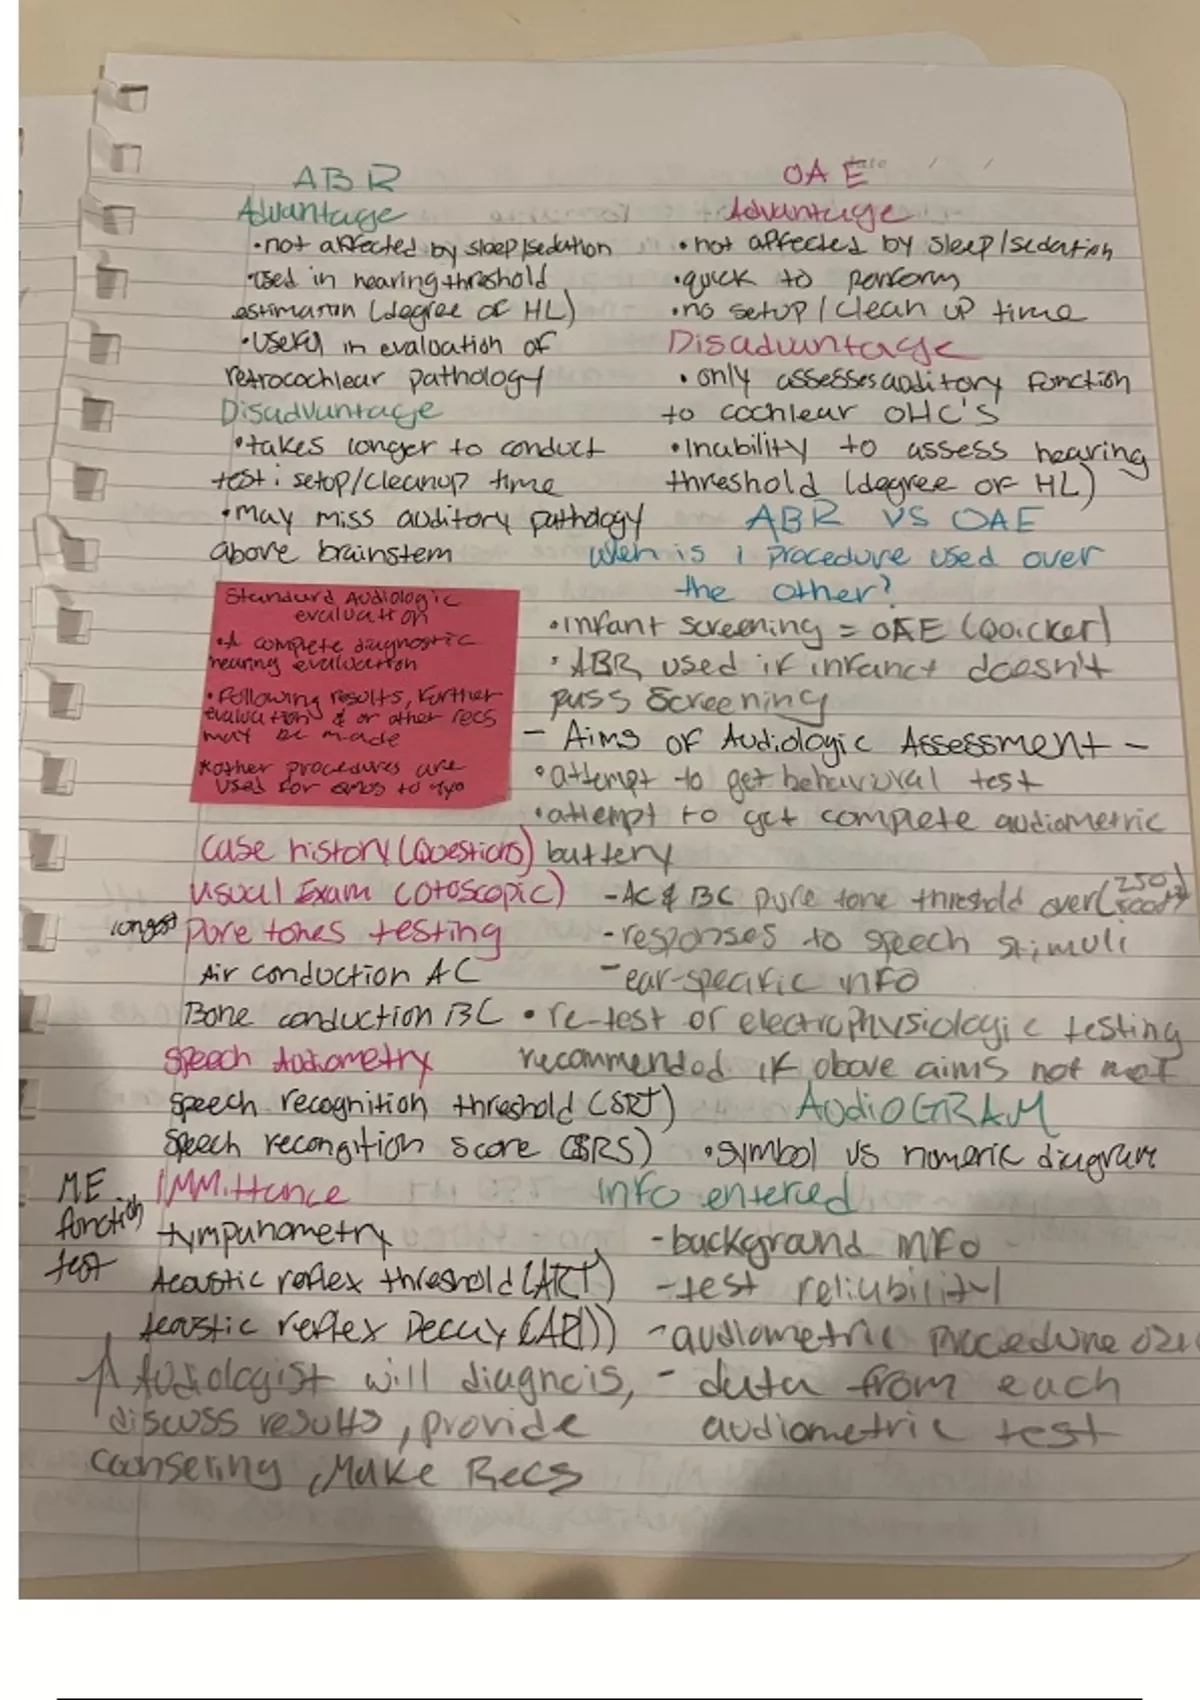 ABR
Advantage
•not affected by sleep/sedation
•used in hearing threshold
estimation (degree of HL)
•Useful in evaluation of
retrocochlear pathology
Disadvantage
•takes longer to conduct
test: setup/cleanup time
•may miss auditory pathology
above brainstem
OAE
Advantage
•not affected by sleep/sedation
•quick to perform
•no setup/clean up time
Disadvantage
•only assesses auditory function
to cochlear OHC's
•Inability to assess hearing
threshold (degree of HL)
ABR VS OAE
when is 1 procedure used over
the other?
•infant screening = OAE (Quicker)
•ABR used if infanct doesn't
pass screening
- Aims of Audiologic Assessment -
•attempt to get behavioral test
•attempt to get complete audiometric
battery
-AC & BC pure tone threshold over
-responses to speech stimuli
-ear-specific info
•re-test or electrophysiologic testing
recommended if above aims not met
Standard Audiologic
evaluation
•A complete diagnostic
hearing evaluation
•Following results, further
evaluation & or other recs
may be made
*other procedures are
used for
Case history (Questions)
Visual Exam (otoscopic)
longest pure tones testing
Air conduction AC
Bone conduction BC
Speech Audiometry
Speech recognition threshold (SRT)
Speech recongition score (SRS)
ME
function
test
IMMittance
tympanometry
Acoustic reflex threshold (ART)
Acoustic reflex Decay (ARD)
Audiologist will diagnois,
discuss results, provide
counsering, Make Recs
AUDIOGRAM
•symbol vs numeric diagram
info entered
-background info
-test reliability
-audiometric procedure
- data from each
audiometric test